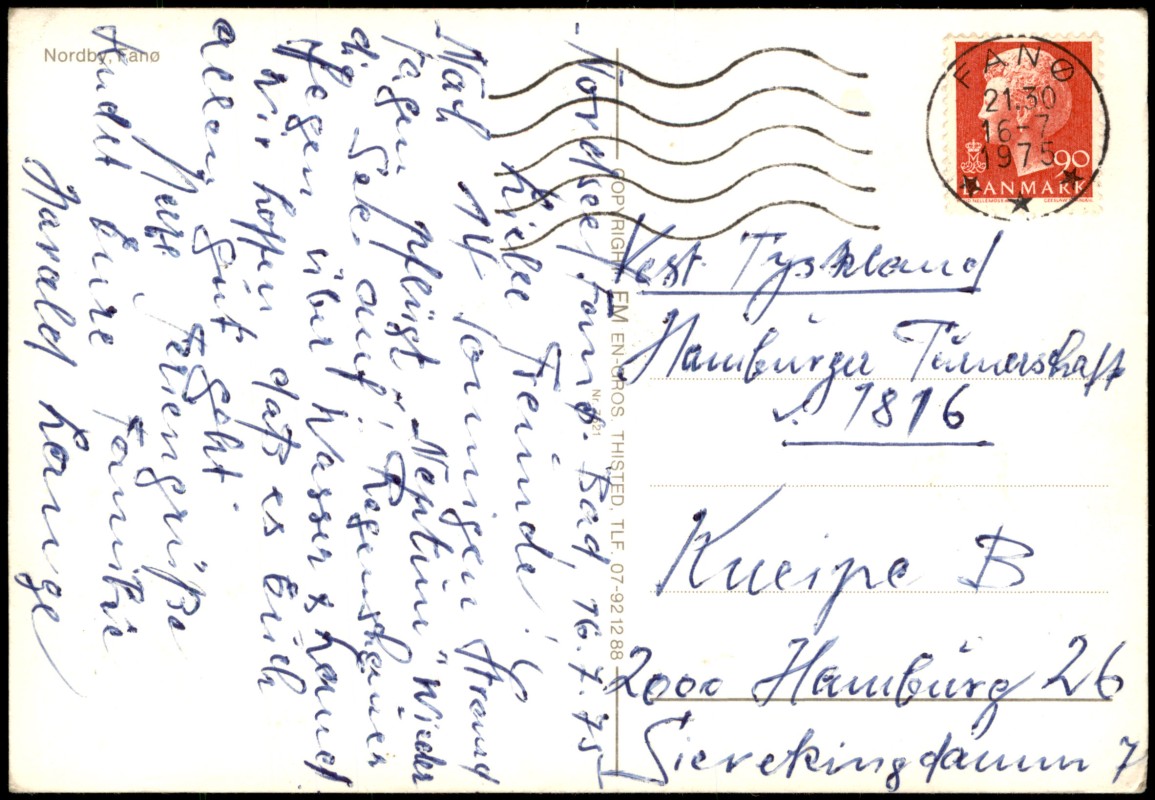 Nordby, Fanø
Nordseef Fanø-Bad 16.7.75
Liebe Freunde!
Nach 14 sonnigen Strand
tagen pflügt "Neptun" wieder
die See auf. Regenschauer
fegen über Wasser & Land
Wir hoffen daß es Euch
allen gut geht.
Herzl. Feriengrüße
sendet Eure Familie
Harald Lange
COPYRIGHT: EM EN-GROS. THISTED. TLF. 07-92 12 88
FANØ
21.30
16-7
1975
90
DANMARK
Vest. Tyskland
Hamburger Turnerschaft
v. 1816
Kneipe B
2000 Hamburg 26
Sievekingdamm 7